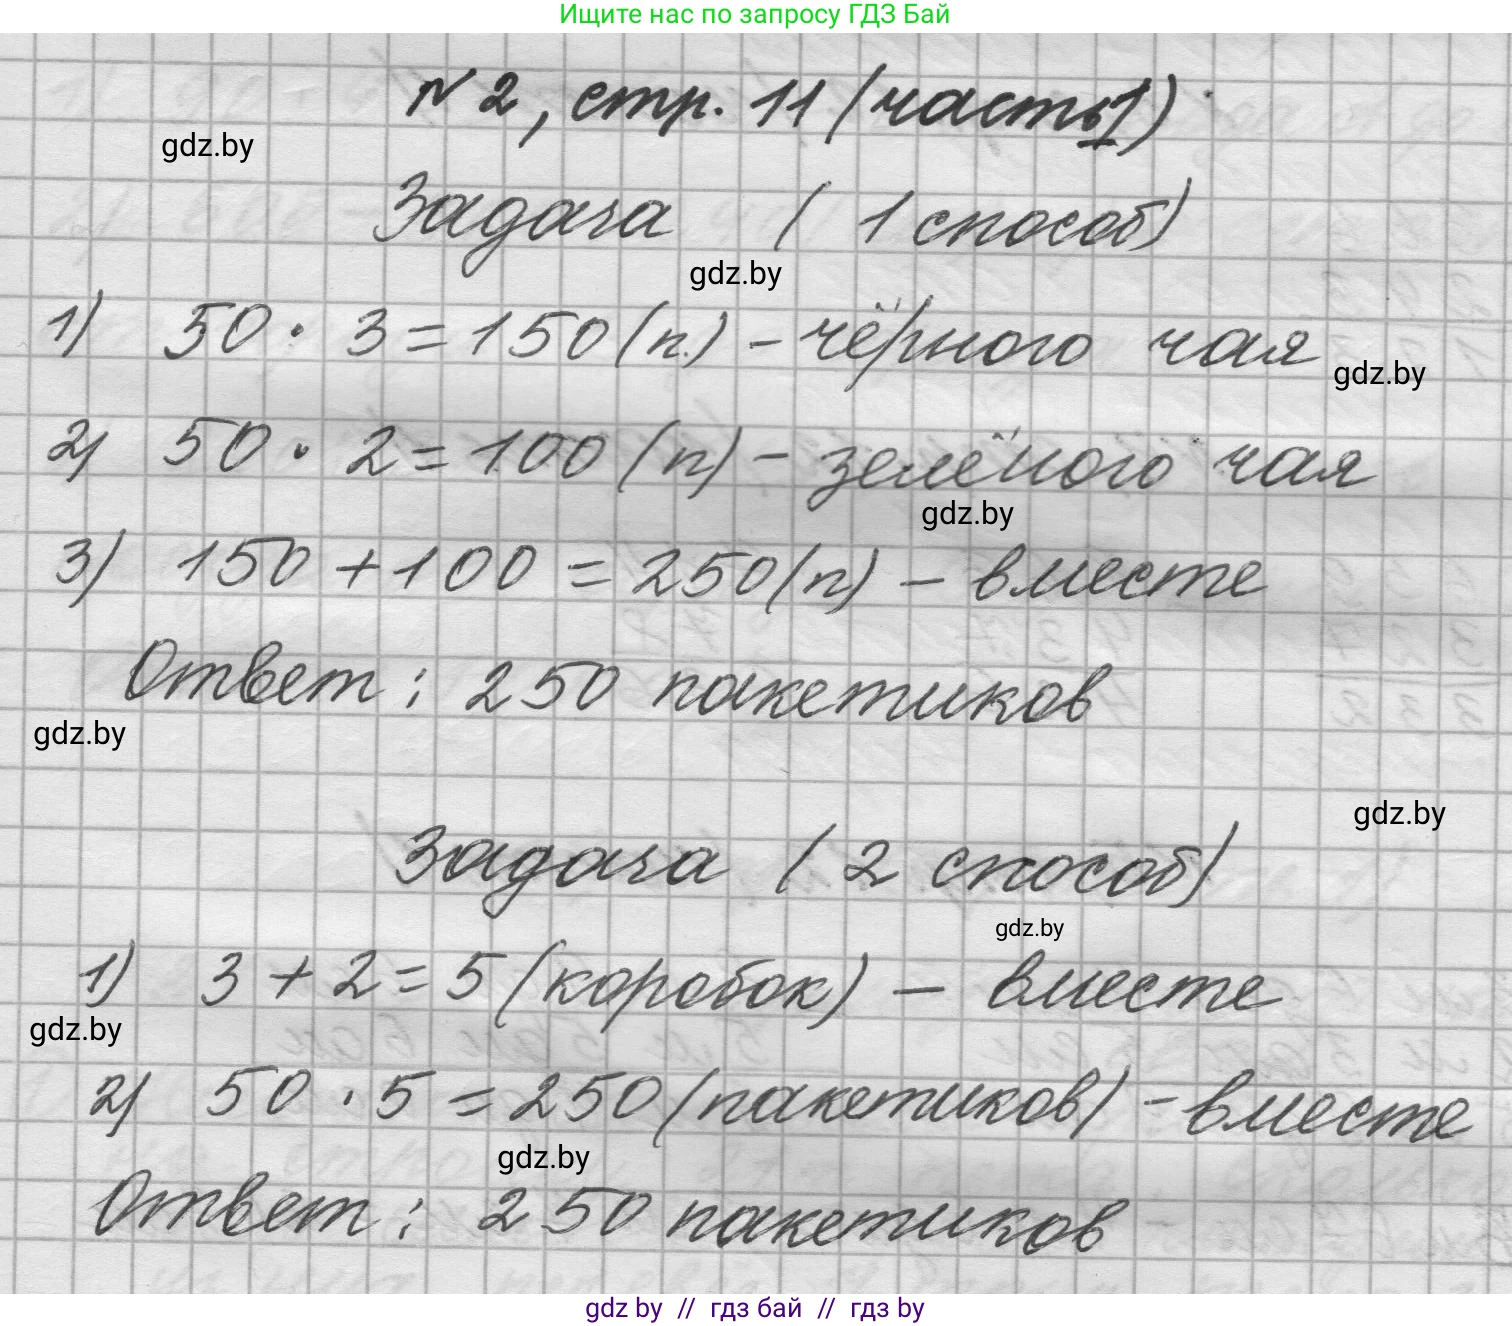 Ищите нас по запросу ГДЗ Бай
№2, стр. 11 (часть 1)
gdz.by
Задача ( 1 способ)
gdz.by
1) 50 · 3 = 150 (п.) - чёрного чая
gdz.by
2) 50 · 2 = 100 (п) - зелёного чая
gdz.by
3) 150 + 100 = 250 (п) - вместе
Ответ: 250 пакетиков
gdz.by
gdz.by
Задача ( 2 способ)
gdz.by
1) 3 + 2 = 5 (коробок) - вместе
gdz.by
2) 50 · 5 = 250 (пакетиков) - вместе
gdz.by
Ответ: 250 пакетиков
gdz by // гдз бай // гдз by